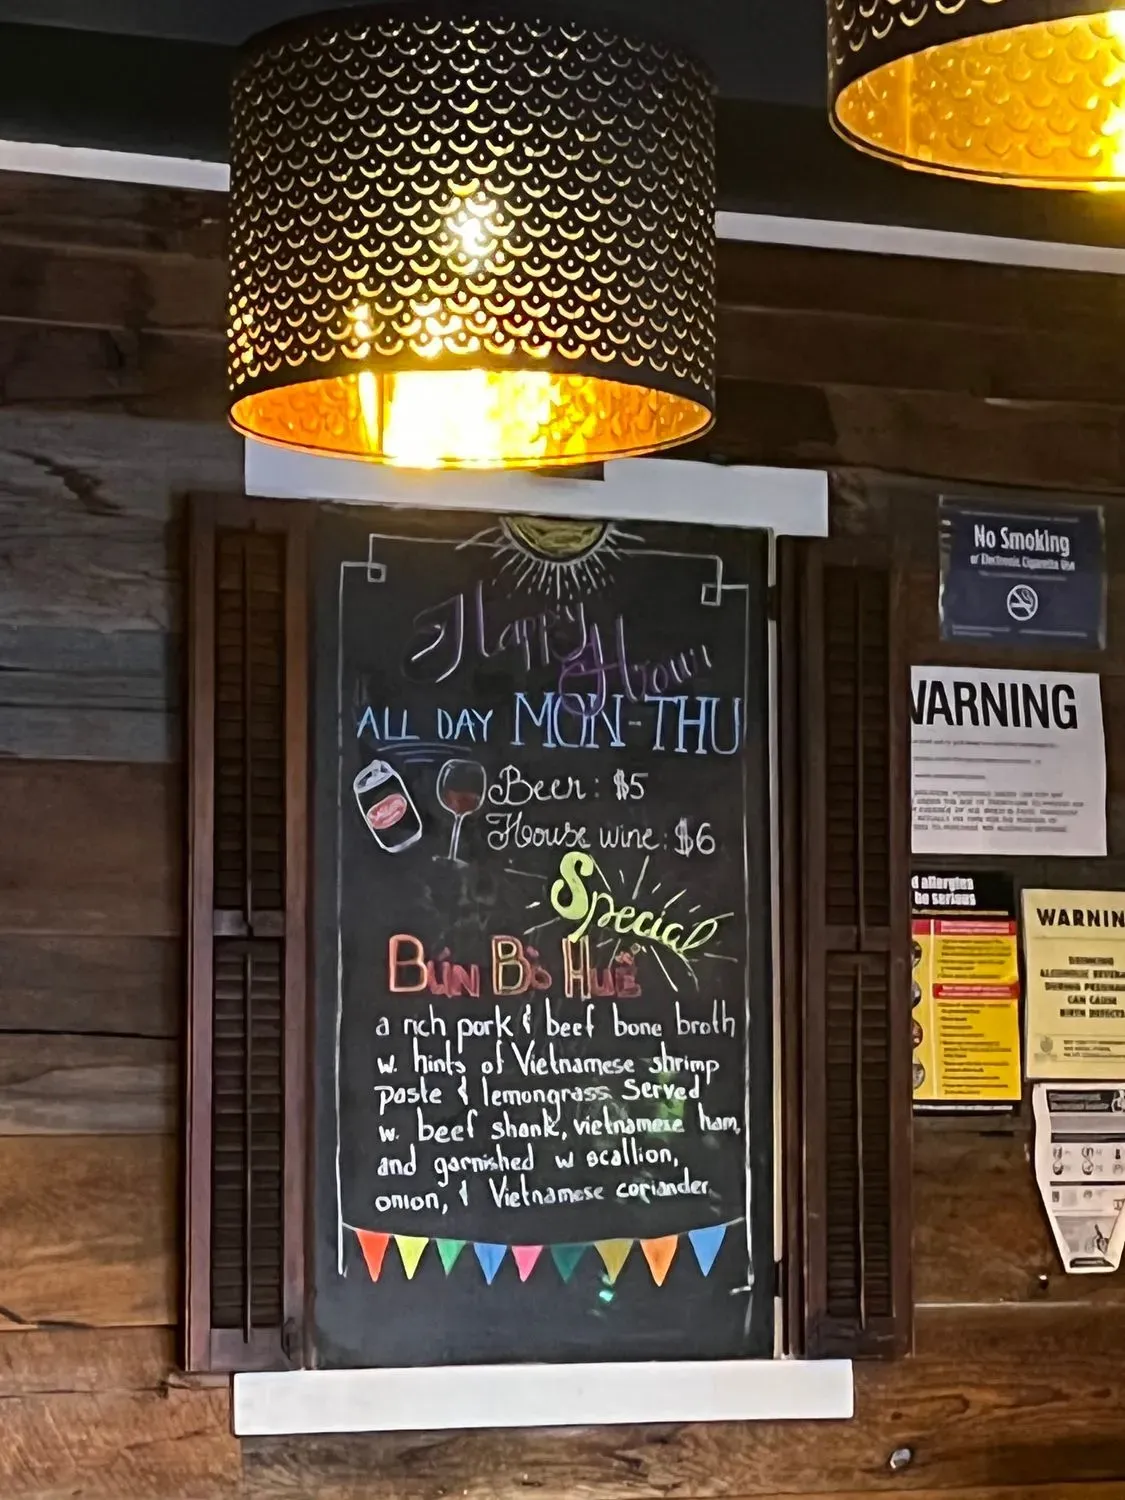 Happy
Hour
ALL DAY MON-THU
Beer: $5
House wine: $6
Special
BÚN BÒ HUẾ
a rich pork & beef bone broth
w. hints of Vietnamese shrimp
paste & lemongrass. Served
w. beef shank, vietnamese ham,
and garnished w scallion,
onion, & Vietnamese coriander
No Smoking
or Electronic Cigarette Use
WARNING
d allergies
be serious
WARNIN
DRINKING
ALCOHOLIC BEVERA
DURING PREGNAN
CAN CAUSE
BIRTH DEFECTS